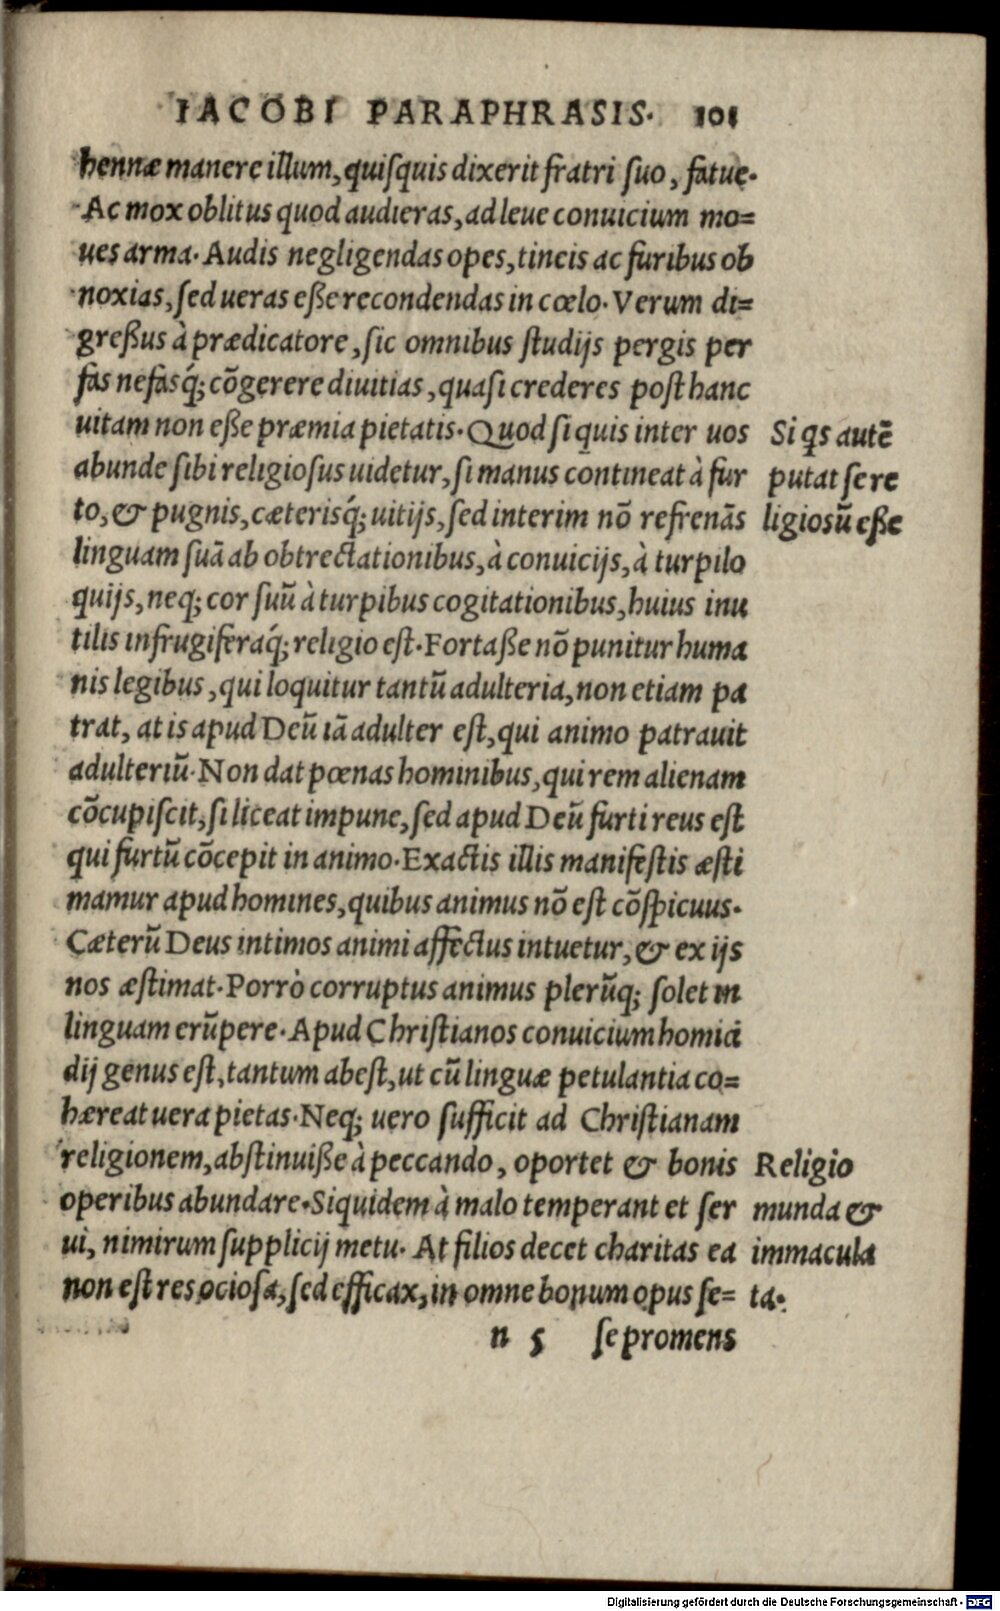 IACOBI PARAPHRASIS. 101
hennæ manere illum, quiſquis dixerit fratri ſuo, fatue.
Ac mox oblitus quod audieras, ad leue conuicium mo=
ues arma. Audis negligendas opes, tineis ac furibus ob
noxias, ſed ueras eße recondendas in cœlo. Verum di=
greßus à prædicatore, ſic omnibus ſtudijs pergis per
fas nefasq́; cōgerere diuitias, quaſi crederes poſt hanc
uitam non eße præmia pietatis. Quod ſi quis inter uos
abunde ſibi religioſus uidetur, ſi manus contineat à fur
to, & pugnis, cæterisq́; uitijs, ſed interim nō refrenās
linguam ſuā ab obtrectationibus, à conuicijs, à turpilo
quijs, neq; cor ſuū à turpibus cogitationibus, huius inu
tilis infrugiferaq́; religio eſt. Fortaße nō punitur huma
nis legibus, qui loquitur tantū adulteria, non etiam pa
trat, at is apud Deū iā adulter eſt, qui animo patrauit
adulteriū. Non dat pœnas hominibus, qui rem alienam
cōcupiſcit, ſi liceat impune, ſed apud Deū furti reus eſt
qui furtū cōcepit in animo. Exactis illis manifeſtis æſti
mamur apud homines, quibus animus nō eſt cōſpicuus.
Cæterū Deus intimos animi affectus intuetur, & ex ijs
nos æſtimat. Porrò corruptus animus plerūq; ſolet in
linguam erūpere. Apud Chriſtianos conuicium homici
dij genus eſt, tantum abeſt, ut cū linguæ petulantia co=
hæreat uera pietas. Neq; uero ſufficit ad Chriſtianam
religionem, abſtinuiße à peccando, oportet & bonis
operibus abundare. Siquidem à malo temperant et ſer
ui, nimirum ſupplicij metu. At filios decet charitas ea
non eſt res ocioſa, ſed efficax, in omne bonum opus ſe=
n 5 ſe promens
Si qs autē
putat ſe re
ligioſū eße
Religio
munda &
immacula
ta.
Digitalisierung gefördert durch die Deutsche Forschungsgemeinschaft - DFG